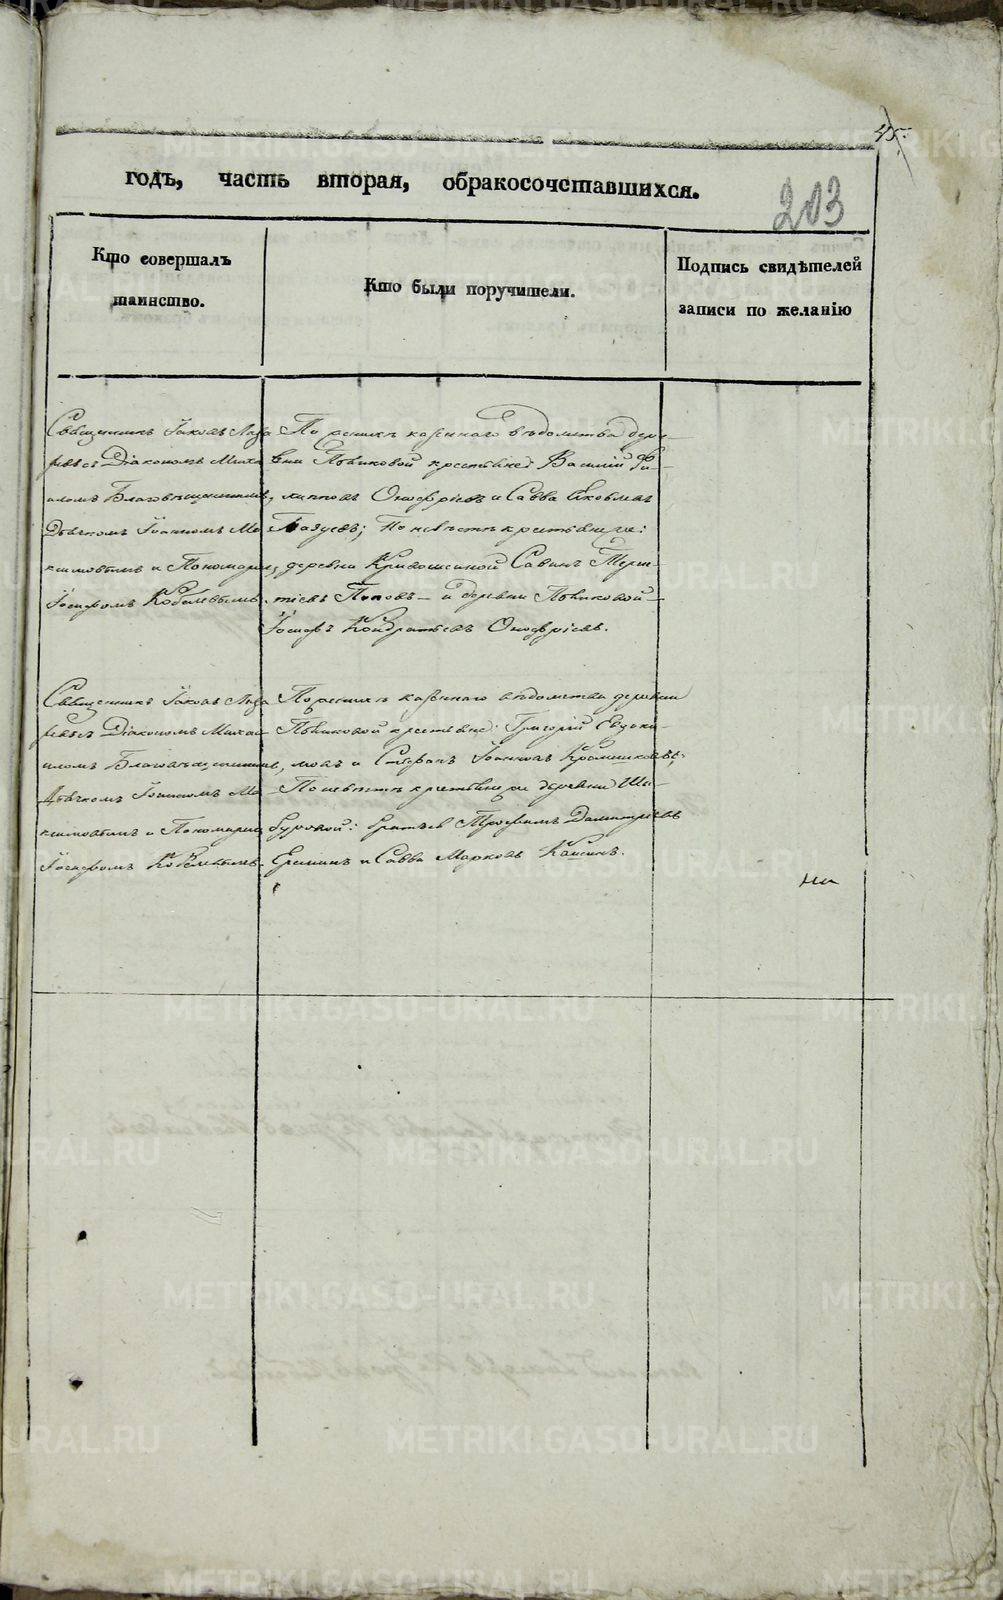 45.
годъ, часть вторая, обракосочетавшихся.
203
Кто совершалъ
таинство.
Кто были поручители.
Подпись свидѣтелей
записи по желанію
Священникъ Іаковъ Лаза
ревъ съ Діакономъ Миха
иломъ Благовѣщенскимъ,
Дьячкомъ Іоанномъ Ма
ксимовымъ и Пономаремъ
Іосифомъ Кобелевымъ.
По женихѣ казеннаго вѣдомства дере-
вни Пьянковой крестьяне: Василій Фи-
липповъ Онофріевъ и Савва Яковлевъ
; По невѣстѣ крестьяне же:
деревни Кривошеиной Савинъ Терен-
тіевъ Поповъ – и деревни Пьянковой –
Іосифъ Кондратьевъ Онофріевъ.
Священникъ Іаковъ Лаза
ревъ съ Діакономъ Михаи-
иломъ Благовѣщенскимъ,
Дьячкомъ Іоанномъ Ма
ксимовымъ и Пономаремъ
Іосифомъ Кобелевымъ.
По женихѣ казеннаго вѣдомства деревни
Пьянковой крестьяне: Григорій Евдоки-
мовъ и Стефанъ Іоанновъ;
По невѣстѣ крестьяне же деревни
: братьевъ Трофимъ Димитріевъ
и Савва Марковъ.
METRIKI.GASO-URAL.RU